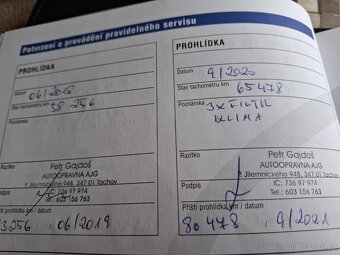 Potvrzení o provádění pravidelného servisu
PROHLÍDKA
Datum
06/2018
Stav tachometru km
58 256
Razítko
Petr Gajdoš
AUTOOPRAVNA AJG
P. Jilemnického 948, 347 01 Tachov
IČ: 736 97 974
Podpis
Tel.: 603 156 763
Příští prohlídka km / datum
3256 06/2019
PROHLÍDKA
Datum
9/2020
Stav tachometru km
65 478
3x FILTR
KLIMA
Razítko
Petr Gajdoš
AUTOOPRAVNA AJG
P. Jilemnického 948, 347 01 Tachov
IČ: 736 97 974
Podpis
Tel.: 603 156 763
Příští prohlídka km / datum
80 478 9/2021